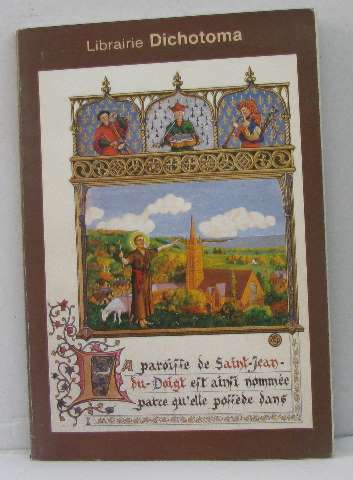 Librairie Dichotoma
LA paroisse de Saint-Jean-
du-Doigt est ainsi nommée
parce qu'elle possède dans